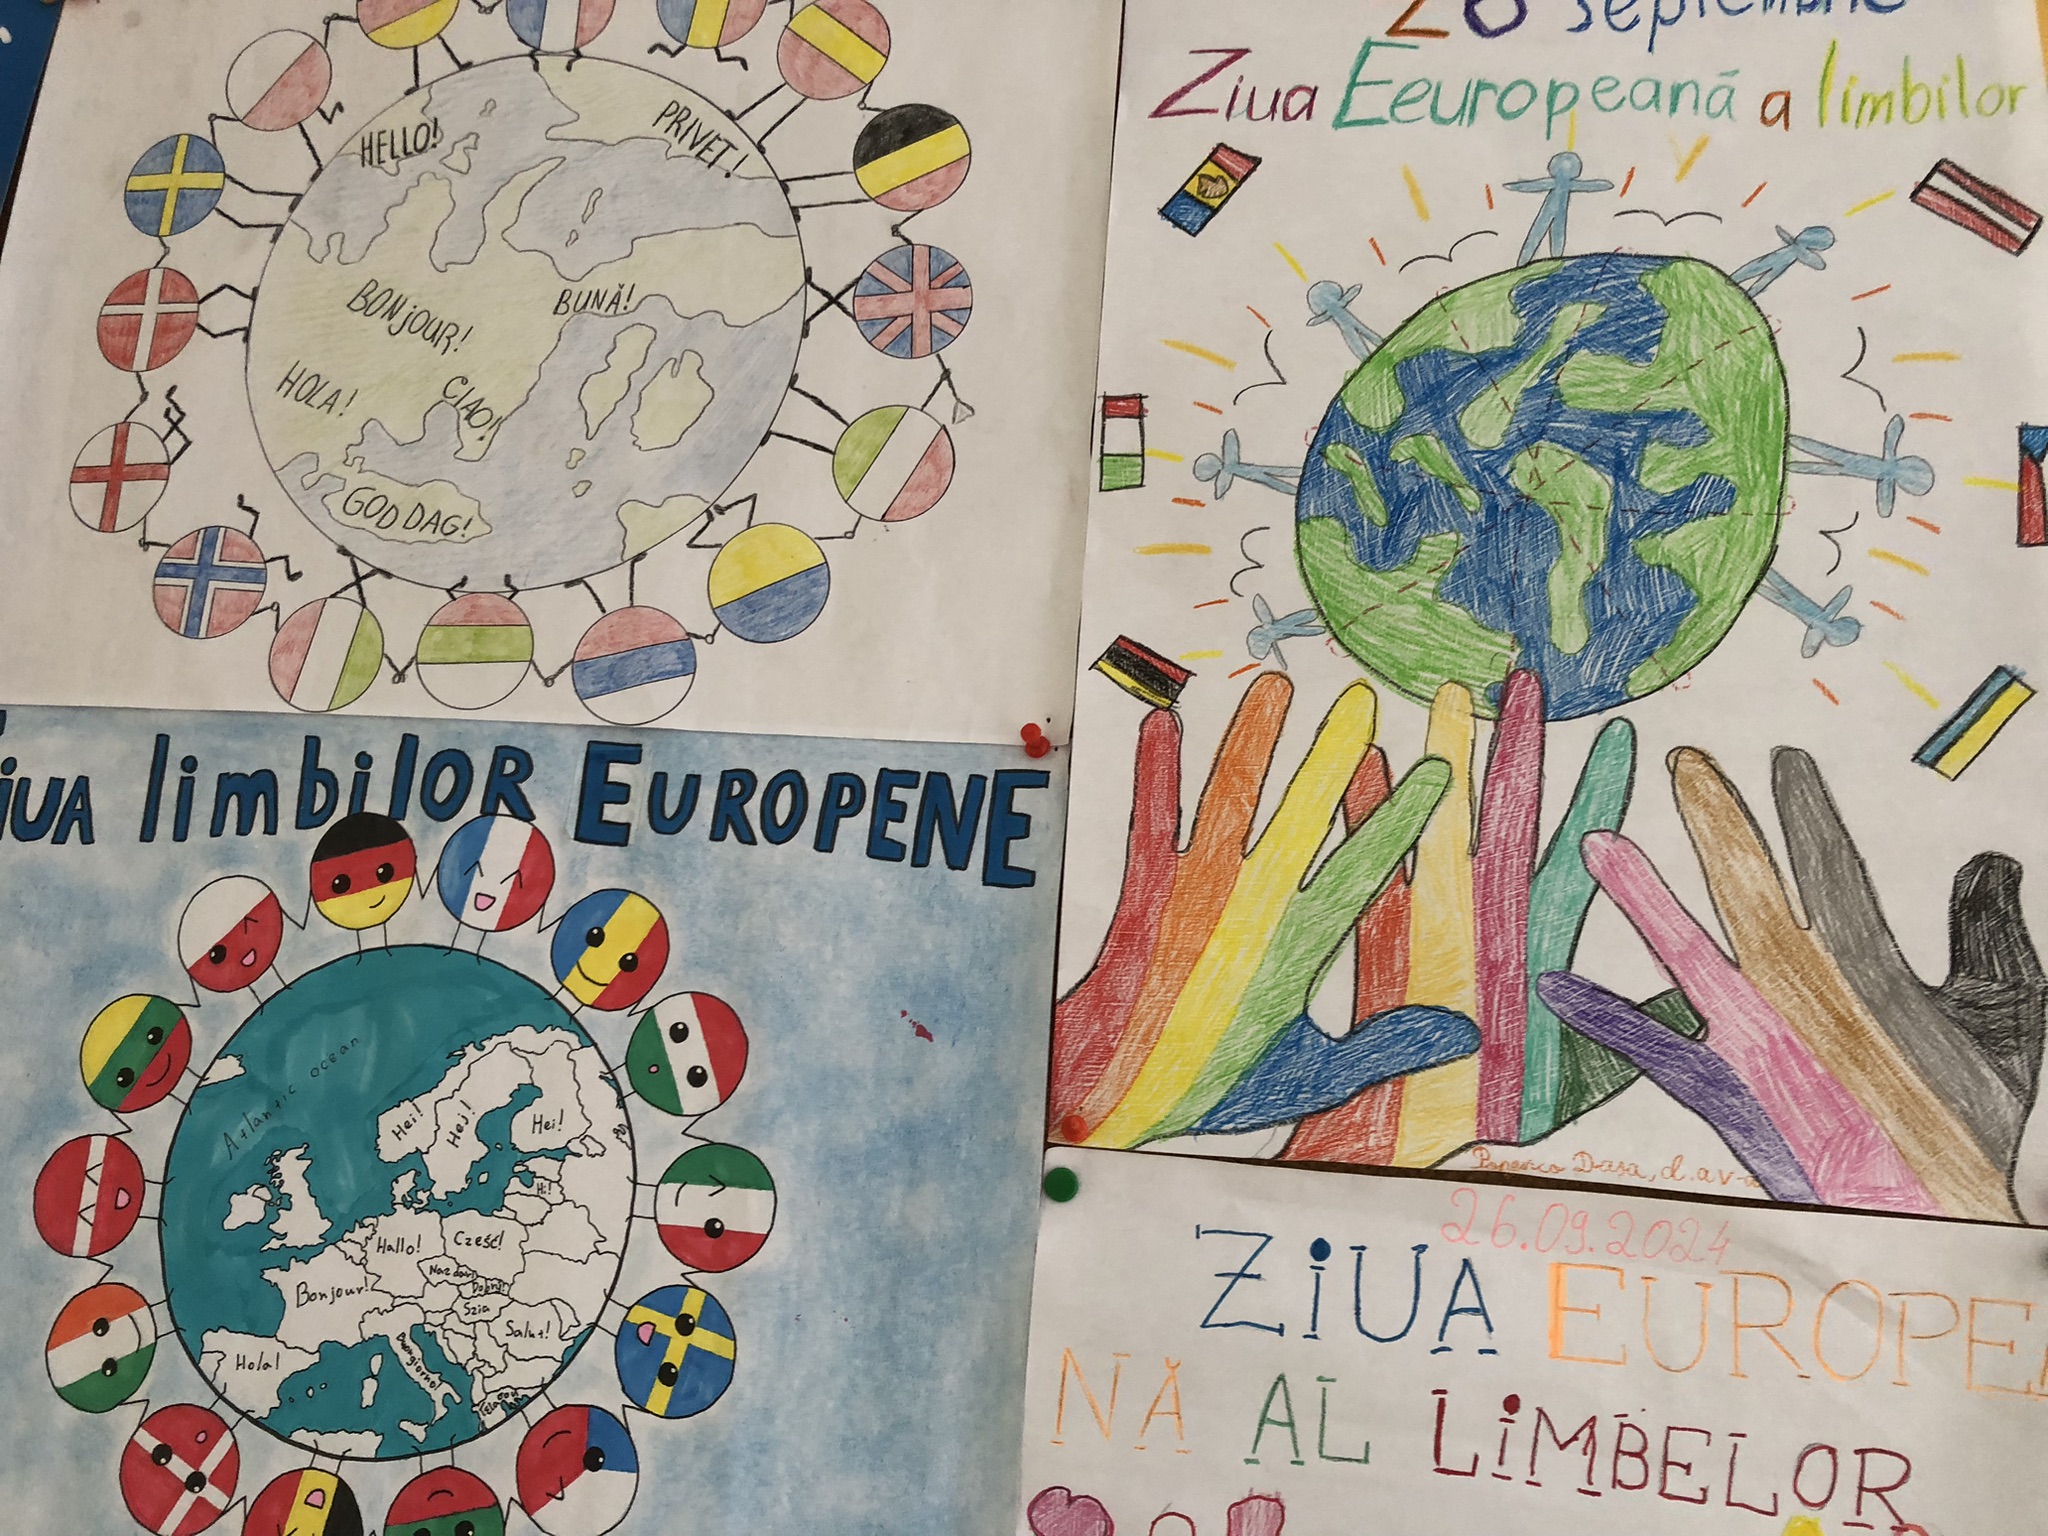 HELLO!
PRIVET!
BONjOUR!
BUNĂ!
HOLA!
CIAO!
GOD DAG!
26 septembrie
Ziua Eeuropeană a limbilor
Popescu Dasa, d.a v-a
ZIUA limbilOR EUROPENE
Atlantic ocean
Hei!
Hej!
Hei!
Hi!
Hallo!
Cześć!
Nazdar!
Dobrý!
Bonjour!
Szia
Salut!
Hola!
Buongiorno!
26.09.2024
ZiUA EUROPEA
NĂ AL LiMBELOR